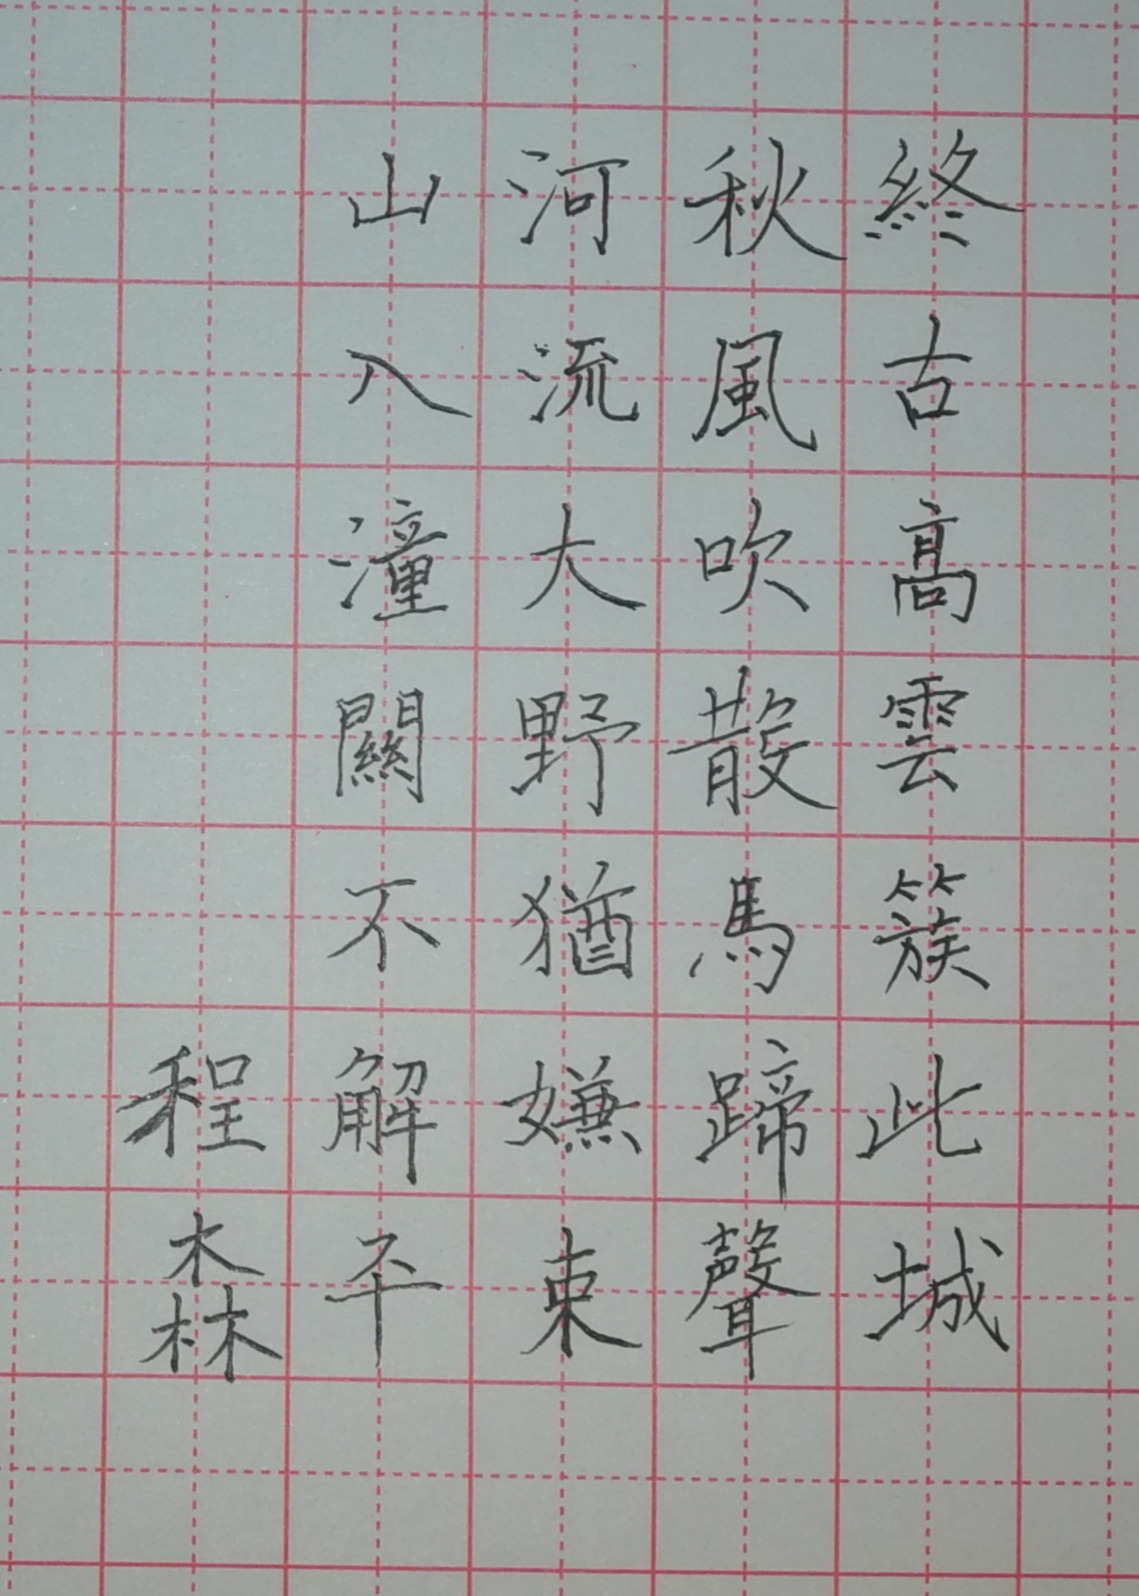 終古高雲簇此城
秋風吹散馬蹄聲
河流大野猶嫌束
山入潼關不解平
程森